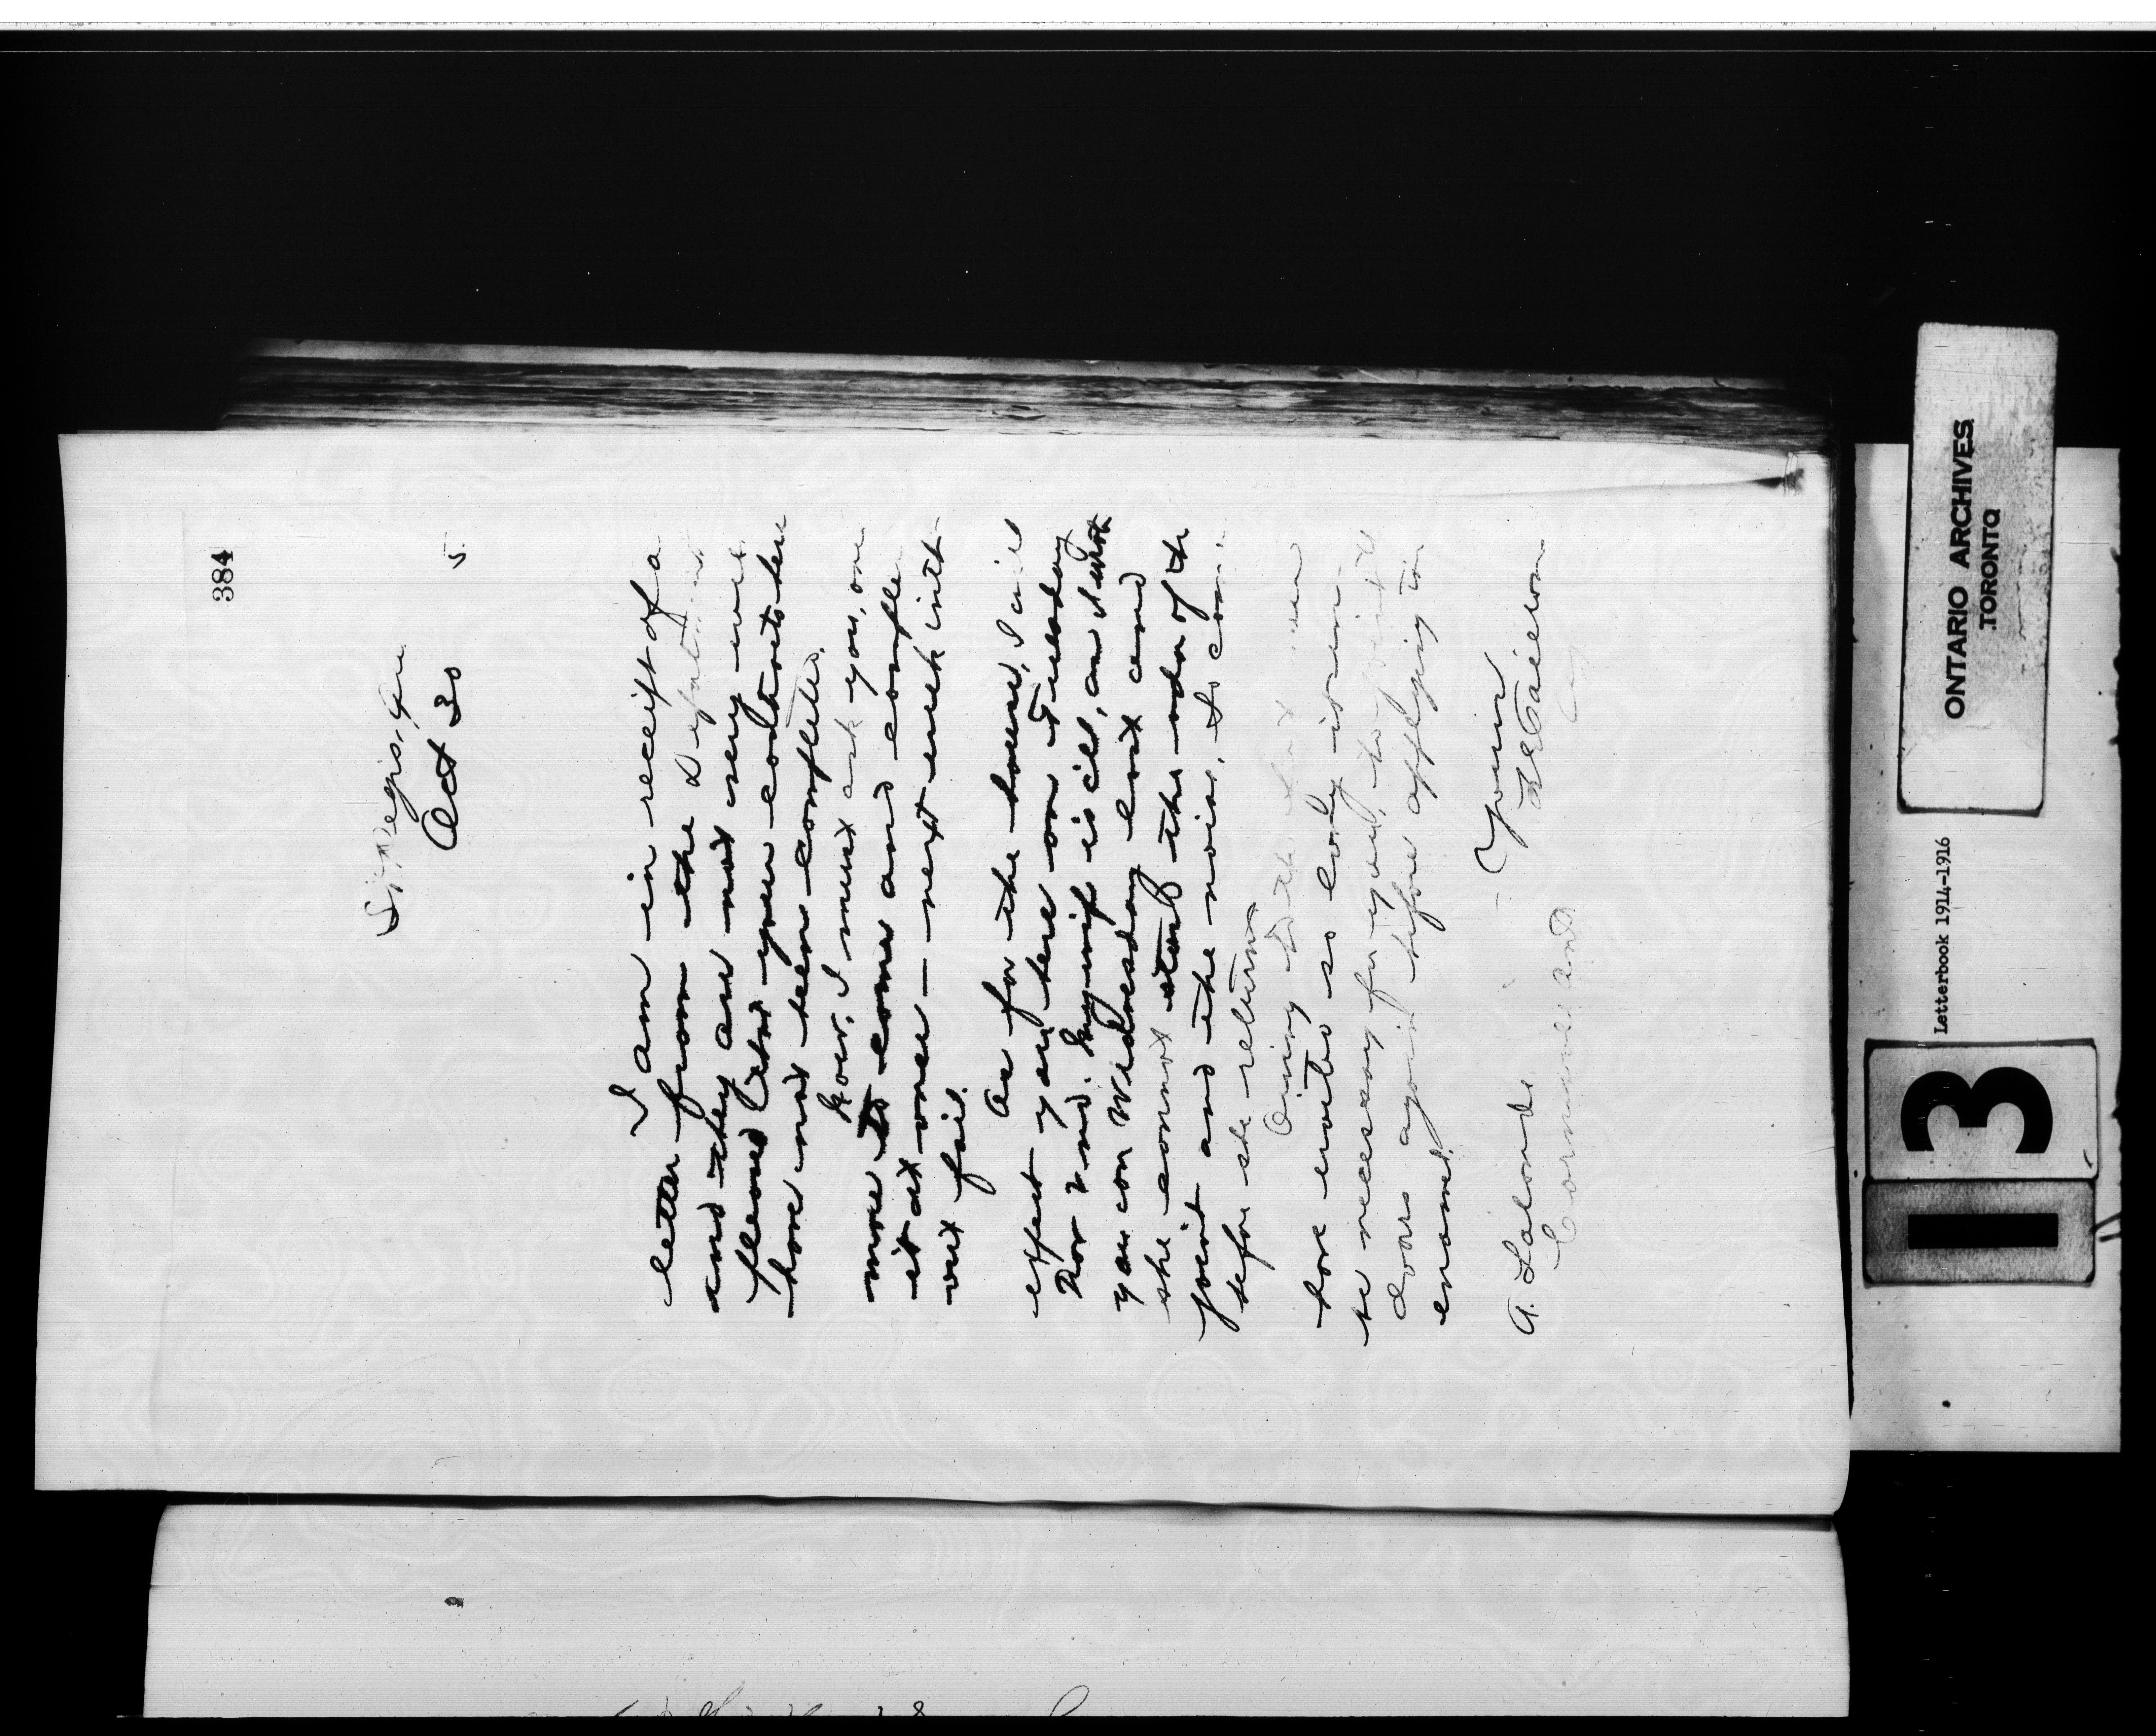 384
St Regis, Que
Oct 30 5
I am in receipt of a
letter from the Department
and they are not very well
pleased that your contracts here
have not been completed.
Now, I must ask you, once
more to come and complete
it at once — next week without
fail.
As for the house, I will
expect you here on Tuesday
Nov 2nd. My wife is ill, and want
you can Wednesday
she cannot stand the odor of the
paint and the noise, so come
before she returns
Owing to the fact
have waited so long it
be necessary for you to
doors again before applying the
enamel.
Yours
A. Lalonde
Cornwall Ont
ONTARIO ARCHIVES
TORONTO
Letterbook 1914-1916
13